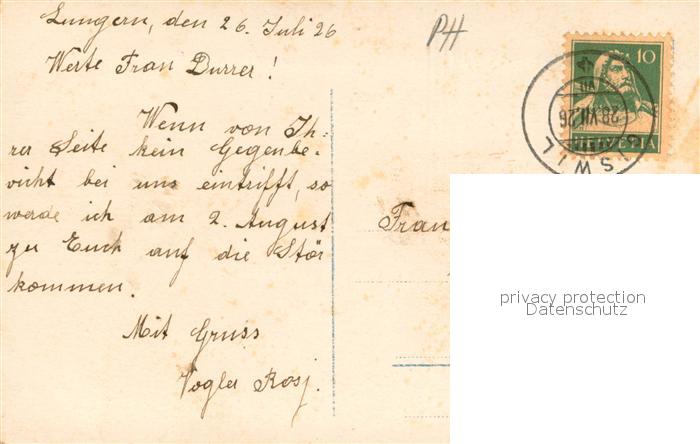 Lungern, den 26. Juli 26
PH
Werte Frau Durrer!
Wenn von Ih-
rer Seite kein Gegenbe-
richt bei uns eintrifft, so
werde ich am 2. August
zu Euch auf die Stör
kommen.
Mit Gruss
Vogler Rosj.
10
HELVETIA
GISWIL
28.VII.26
Frau
privacy protection
Datenschutz